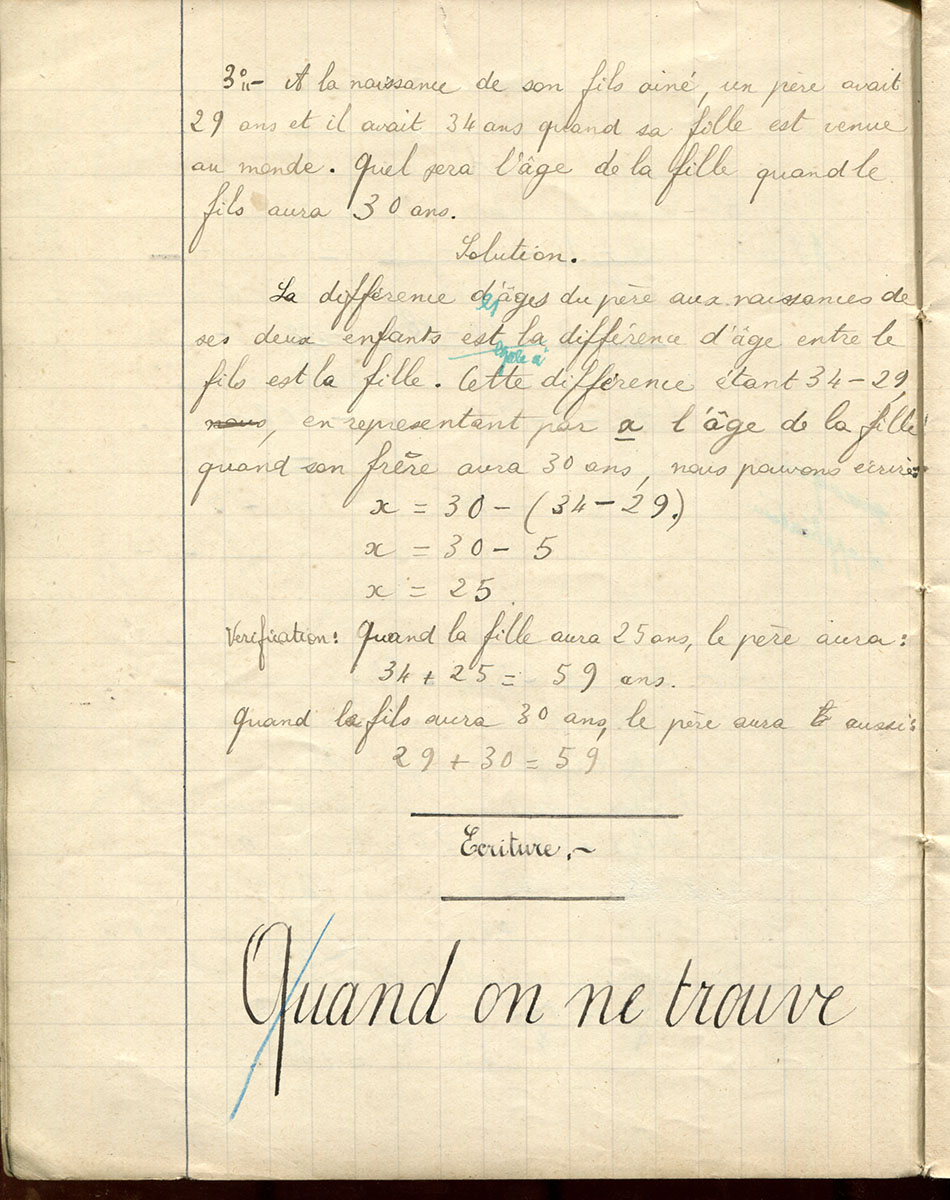 3º.- A la naissance de son fils ainé, un père avait
29 ans et il avait 34 ans quand sa fille est venue
au monde. Quel sera l'âge de la fille quand le
fils aura 30 ans.
Solution.
La différence d'âges du père aux naissances de
ses deux enfants est la différence d'âge entre le
egale à
fils est la fille. Cette différence étant 34 - 29,
nous, en representant par x l'âge de la fille
quand son frère aura 30 ans, nous pouvons écrire:
x = 30 - (34 - 29.)
x = 30 - 5
x = 25.
Verification: Quand la fille aura 25 ans, le père aura:
34 + 25 = 59 ans.
Quand le fils aura 30 ans, le père aura aussi:
29 + 30 = 59
Ecriture.-
Quand on ne trouve